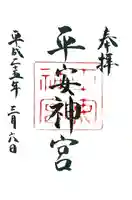 奉拝
平安神宮
平成二五年
三月六日